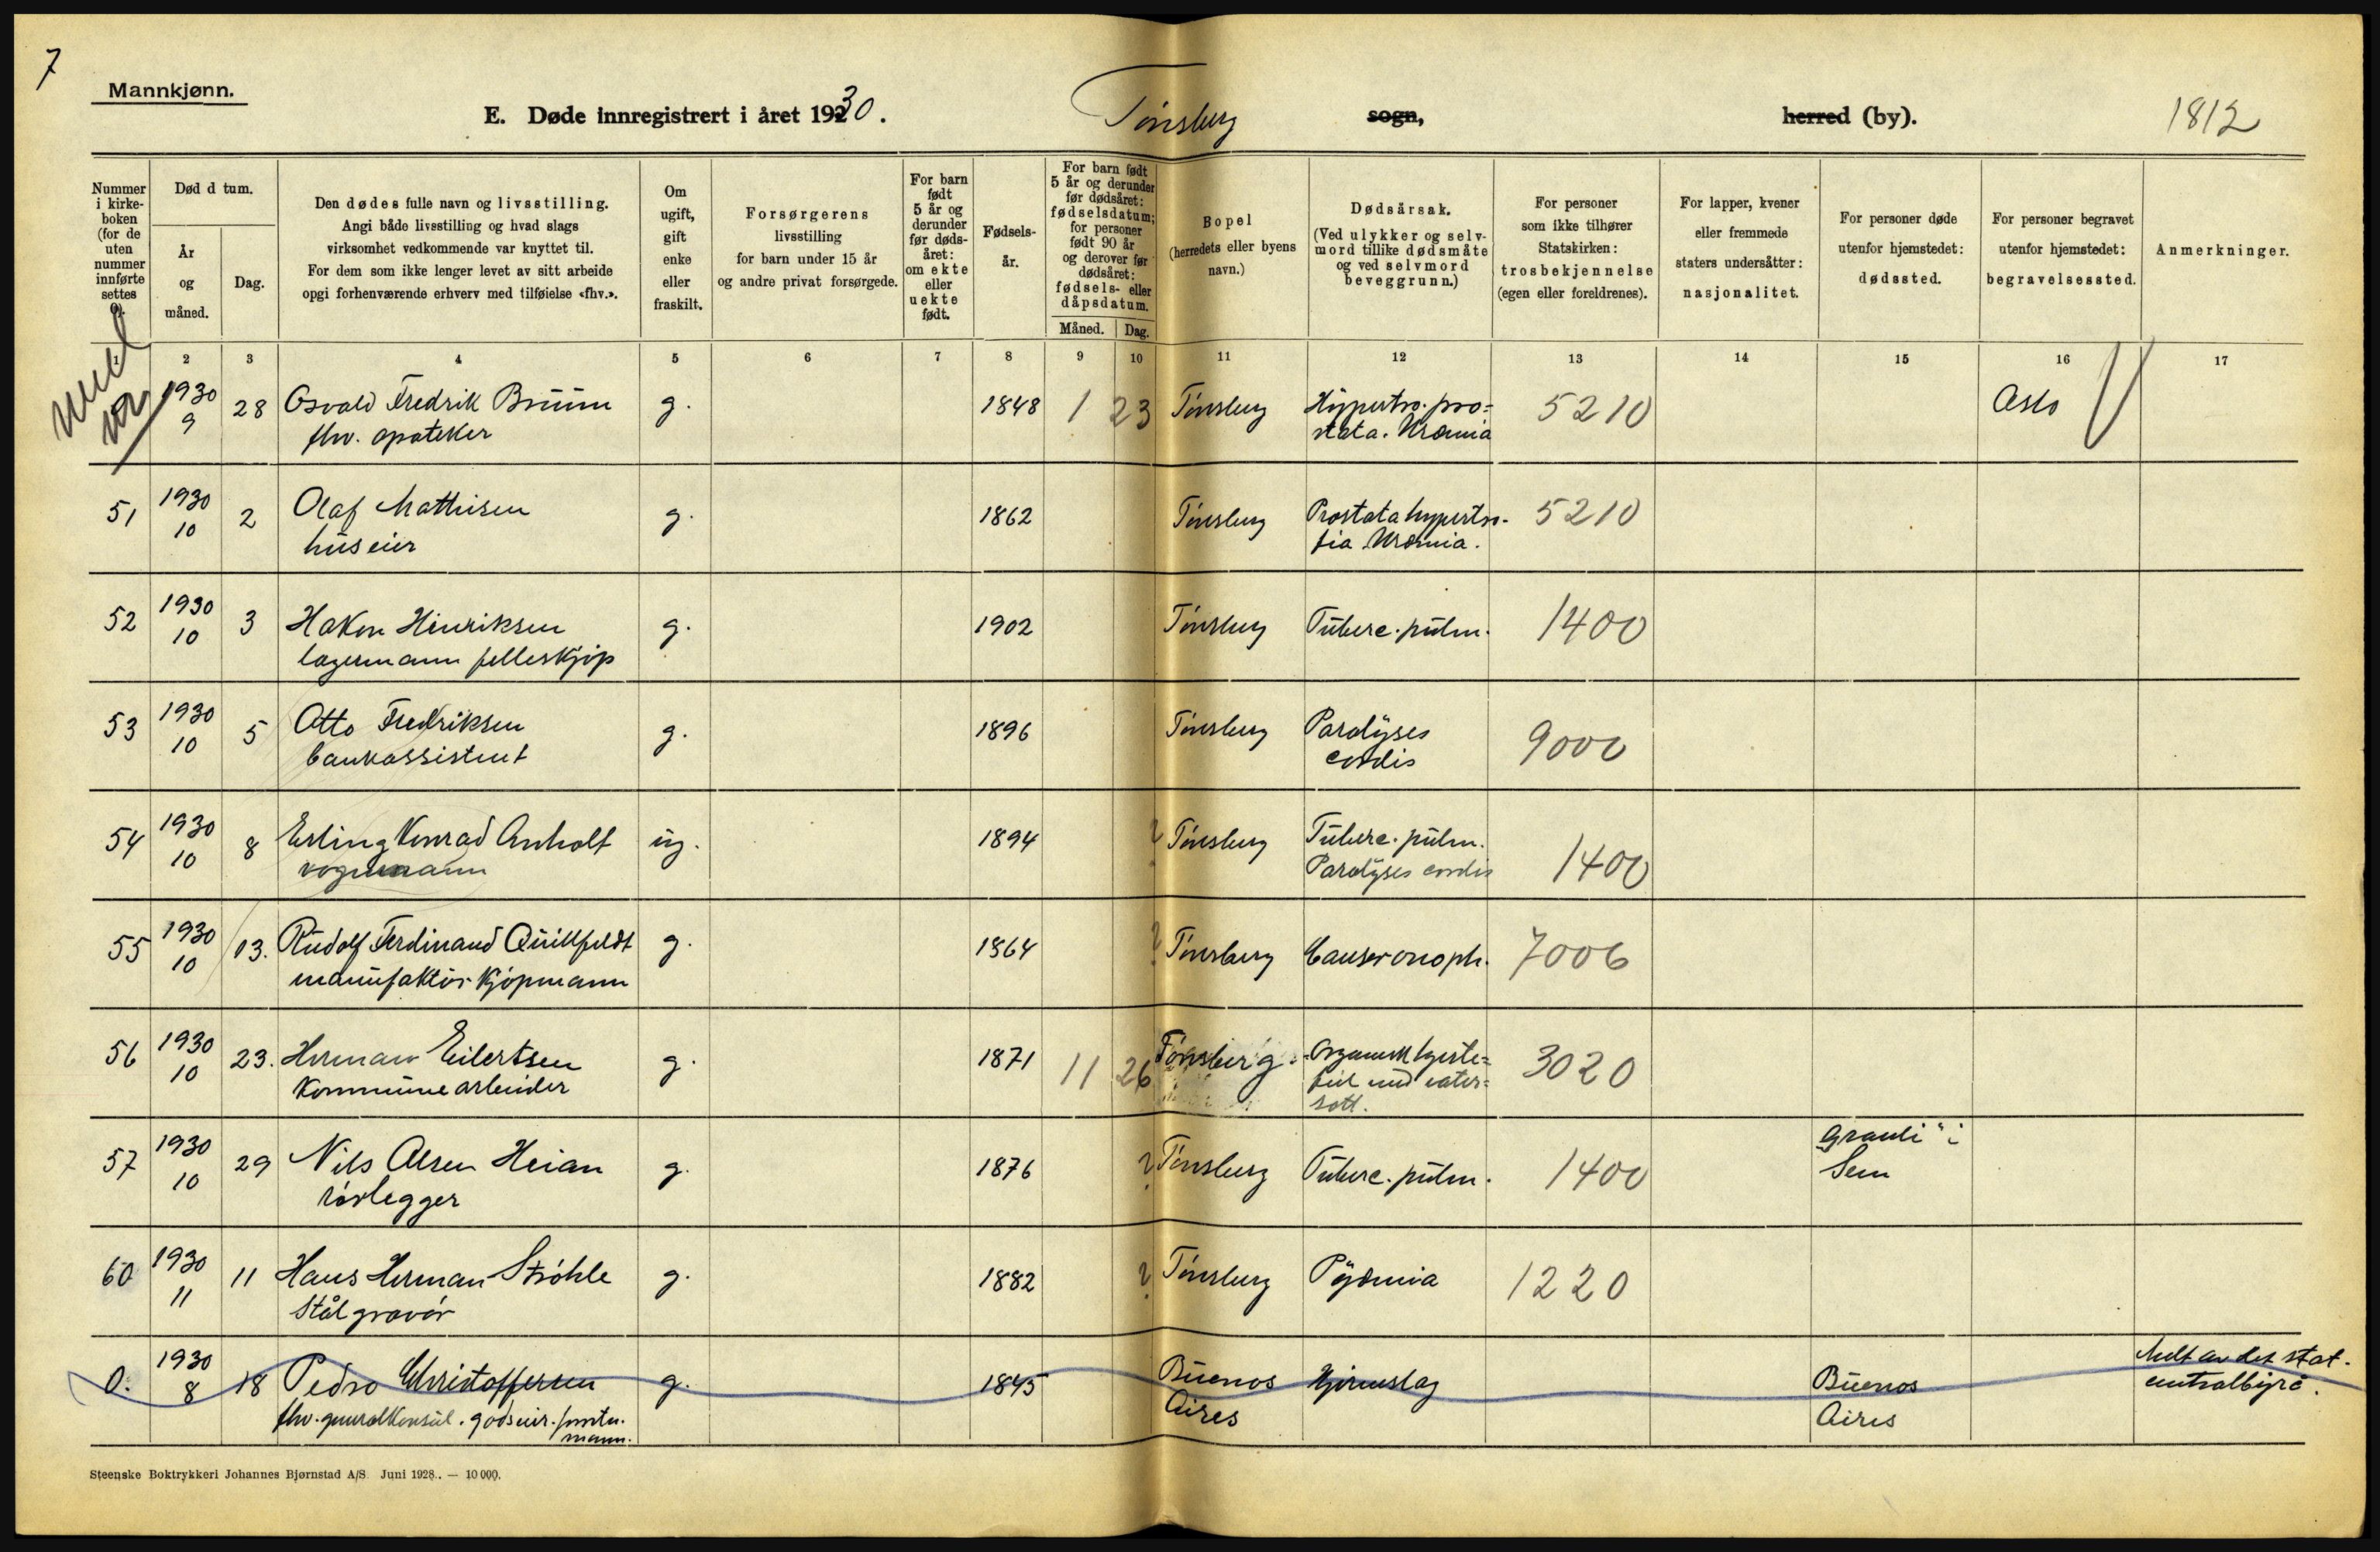 7
Mannkjønn.
E. Døde innregistrert i året 1930.
Tønsberg
sogn,
herred (by).
1812
Nummer i kirke-boken (for de uten nummer innførte settes 0).
Død d tum.
År og måned.
Dag.
Den dødes fulle navn og livsstilling.
Angi både livsstilling og hvad slags
virksomhet vedkommende var knyttet til.
For dem som ikke lenger levet av sitt arbeide
opgi forhenværende erhverv med tilføielse «fhv.».
Om ugift, gift enke eller fraskilt.
Forsørgerens
livsstilling
for barn under 15 år
og andre privat forsørgede.
For barn født 5 år og derunder før døds-året: om ekte eller uekte født.
Fødsels-år.
For barn født 5 år og derunder før dødsåret: fødselsdatum; for personer født 90 år og derover før dødsåret: fødsels- eller dåpsdatum.
Måned.
Dag.
Bopel
(herredets eller byens
navn.)
Dødsårsak.
(Ved ulykker og selv-
mord tillike dødsmåte
og ved selvmord
beveggrunn.)
For personer
som ikke tilhører
Statskirken:
trosbekjennelse
(egen eller foreldrenes).
For lapper, kvener
eller fremmede
staters undersåtter:
nasjonalitet.
For personer døde
utenfor hjemstedet:
dødssted.
For personer begravet
utenfor hjemstedet:
begravelsessted.
Anmerkninger.
1 2 3 4 5 6 7 8 9 10 11 12 13 14 15 16 17
1930 9 28 Osvald Fredrik Bruun g. 1848 1 23 Tønsberg Hypertro. pro= 5210 Oslo
fhv. apoteker stata. Uræmia
51 1930 10 2 Olaf Mathisen g. 1862 Tønsberg Prostata hypertro- 5210
huseier fia. Uræmia.
52 1930 10 3 Hakon Henriksen g. 1902 Tønsberg Tuberc. pulm. 1400
lagermann felleskjøp
53 1930 10 5 Otto Fredriksen g. 1896 Tønsberg Paralyses 9000
bankassistent cordis
54 1930 10 8 Erling Konrad Anholt ug. 1894 ? Tønsberg Tuberc. pulm. 1400
vognmann Paralyses cordis
55 1930 10 13. Rudolf Ferdinand Quillfeldt g. 1864 ? Tønsberg Cancer onoph. 7006
manufaktur kjøpmann
56 1930 10 23. Herman Eilertsen g. 1871 11 26 Tønsberg. Organisk hjerte= 3020
Kommunearbeider feil med vater=
sott.
57 1930 10 29 Nils Olsen Heian g. 1876 ? Tønsberg Tuberc. pulm. 1400 Grauli" i
rørlegger Sem
60 1930 11 11 Hans Herman Strøhle g. 1882 ? Tønsberg Pyæmia 1220
Stålgravør
0. 1930 8 18 Pedro Christoffersen g. 1845 Buenos Aires Hjerneslag Buenos Aires Meldt av det stat.
fhv. generalkonsul. godseier. forretn. centralbyrå.
mann.
Steenske Boktrykkeri Johannes Bjørnstad A/S Juni 1928. — 10 000.